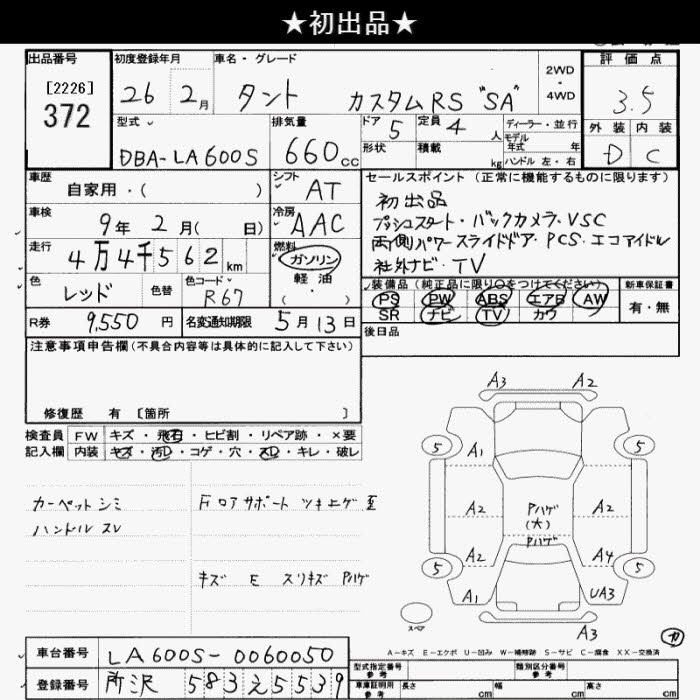 ★初出品★
出品番号
[2226]
372
初度登録年月
26 2月
車名・グレード
タント カスタムRS "SA"
2WD
・
4WD
評価点
3.5
外装 内装
D C
型式
DBA-LA600S
排気量
660cc
ドア 5
定員 4人
形状
積載 kg
ディーラー・並行
モデル年式 年
ハンドル 左・右
車歴
自家用・( )
シフト
AT
車検
9年 2月( 日)
冷房
AAC
走行
4万4千562km
燃料
ガソリン
軽油
( ・ )
色
レッド
色替
色コード
R67
R券 9,550円
名変通知期限 5月13日
セールスポイント(正常に機能するものに限ります)
初出品
プッシュスタート・バックカメラ・VSC
両側パワースライドドア・PCS・エコアイドル
社外ナビ・TV
装備品(純正品に限り○をつけてください)
PS PW ABS エアB AW
SR ナビ TV カワ
新車保証書
有・無
後日品
注意事項申告欄(不具合内容等は具体的に記入して下さい)
修復歴 有 [箇所 ]
検査員
記入欄
FW キズ・飛石・ヒビ割・リペア跡・×要
内装 キズ・汚レ・コゲ・穴・スレ・キレ・破レ
カーペットシミ
ハンドルスレ
FロアサポートツキエゲE
キズ E スリキズ Pハゲ
A3 A2
5 5
A1
A2 A2
Pハゲ
(大)
Pハゲ
A2 A4
5 5
A1 UA3
A3
スペア
A-キズ E-エクボ U-凹み W-補修跡 S-サビ C-腐食 XX-交換済
車台番号 LA600S-0060050
登録番号 所沢 583 え 5539
型式指定番号
参考
類別区分番号
参考
車庫証明用
参考
長さ cm 幅 cm 高さ cm